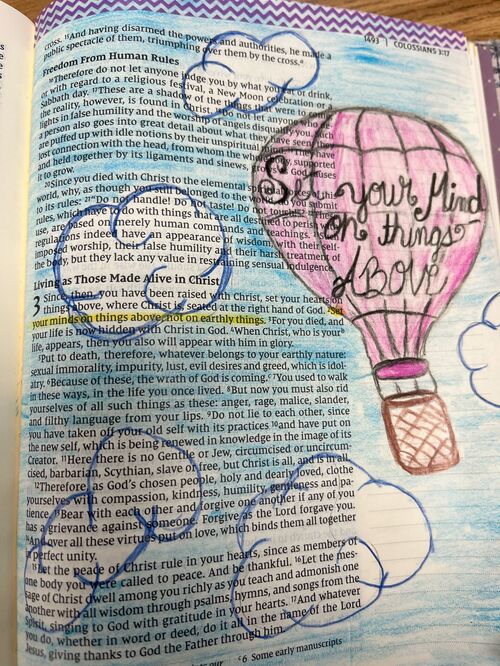 1493 | COLOSSIANS 3:17
cross. 15And having disarmed the powers and authorities, he made a
public spectacle of them, triumphing over them by the cross.
Freedom From Human Rules
16Therefore do not let anyone judge you by what you eat or drink,
or with regard to a religious festival, a New Moon celebration or a
Sabbath day. 17These are a shadow of the things that were to come;
the reality, however, is found in Christ. 18Do not let anyone who de-
lights in false humility and the worship of angels disqualify you. Such
a person also goes into great detail about what they have seen; they
are puffed up with idle notions by their unspiritual mind. They have
lost connection with the head, from whom the whole body, supported
and held together by its ligaments and sinews, grows as God causes
it to grow.
20Since you died with Christ to the elemental spiritual forces of this
world, why, as though you still belonged to the world, do you submit
to its rules: 21"Do not handle! Do not taste! Do not touch!"? 22These
rules, which have to do with things that are all destined to perish
are based on merely human commands
regulations indeed have an appearance of wisdom, with their self-
imposed worship, their false humility and their harsh treatment of
the body, but they lack any value in restraining sensual indulgence.
Living as Those Made Alive in Christ
3 Since, then, you have been raised with Christ, set your hearts on
things above, where Christ is, seated at the right hand of God. 2Set
your minds on things above, not on earthly things. 3For you died, and
your life is now hidden with Christ in God. 4When Christ, who is your
life, appears, then you also will appear with him in glory.
5Put to death, therefore, whatever belongs to your earthly nature:
sexual immorality, impurity, lust, evil desires and greed, which is idol-
atry. 6Because of these, the wrath of God is coming. 7You used to walk
in these ways, in the life you once lived. 8But now you must also rid
yourselves of all such things as these: anger, rage, malice, slander,
and filthy language from your lips. 9Do not lie to each other, since
you have taken off your old self with its practices 10and have put on
the new self, which is being renewed in knowledge in the image of its
Creator. 11Here there is no Gentile or Jew, circumcised or uncircum-
cised, barbarian, Scythian, slave or free, but Christ is all, and is in all.
12Therefore, as God's chosen people, holy and dearly loved, clothe
yourselves with compassion, kindness, humility, gentleness and pa-
tience. 13Bear with each other and forgive one another if any of you
has a grievance against someone. Forgive as the Lord forgave you.
14And over all these virtues put on love, which binds them all together
in perfect unity.
15Let the peace of Christ rule in your hearts, since as members of
one body you were called to peace. And be thankful. 16Let the mes-
sage of Christ dwell among you richly as you teach and admonish one
another with all wisdom through psalms, hymns, and songs from the
Spirit, singing to God with gratitude in your hearts. 17And whatever
you do, whether in word or deed, do it all in the name of the Lord
Jesus, giving thanks to God the Father through him.
6 Some early manuscripts
Set your Mind
on things
ABOVE